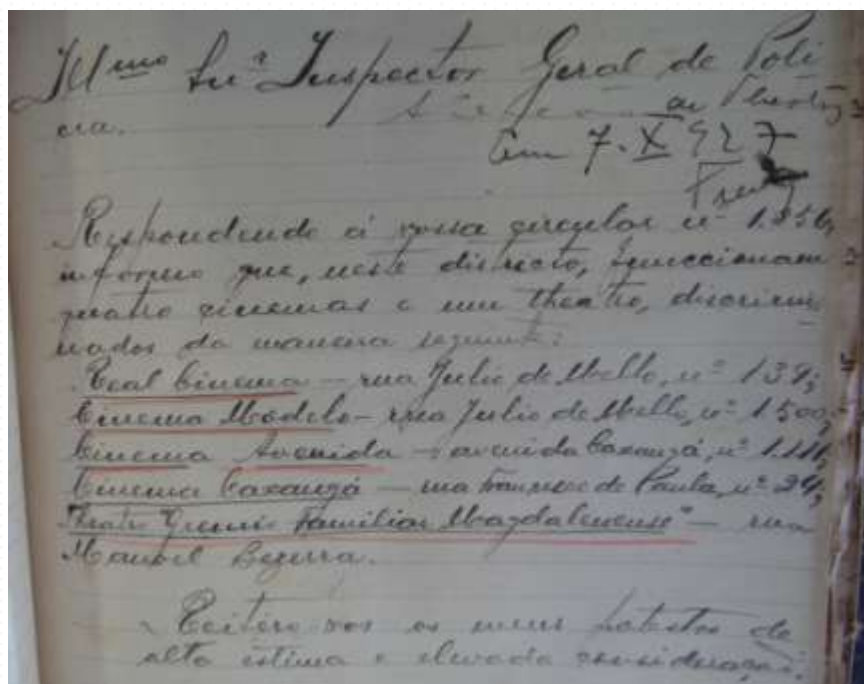 Illmo Snr Inspector Geral de Poli
cia.
Em 7. X 927
Respondendo á vossa circular nº 1.856,
informo que, neste districto, funccionam
quatro cinemas e um theatro, discrimi
nados da maneira seguinte:
Real Cinema — rua Julio de Mello, nº 139;
Cinema Modelo — rua Julio de Mello, nº 1500;
Cinema Avenida — avenida Caxangá, nº
Cinema Caxangá — rua Francisco de Paula, nº 24;
Theatro "Gremio Familiar Magdalenense" — rua
Manoel Bezerra.
Reitero-vos os meus protestos de
alta estima e elevada consideração.